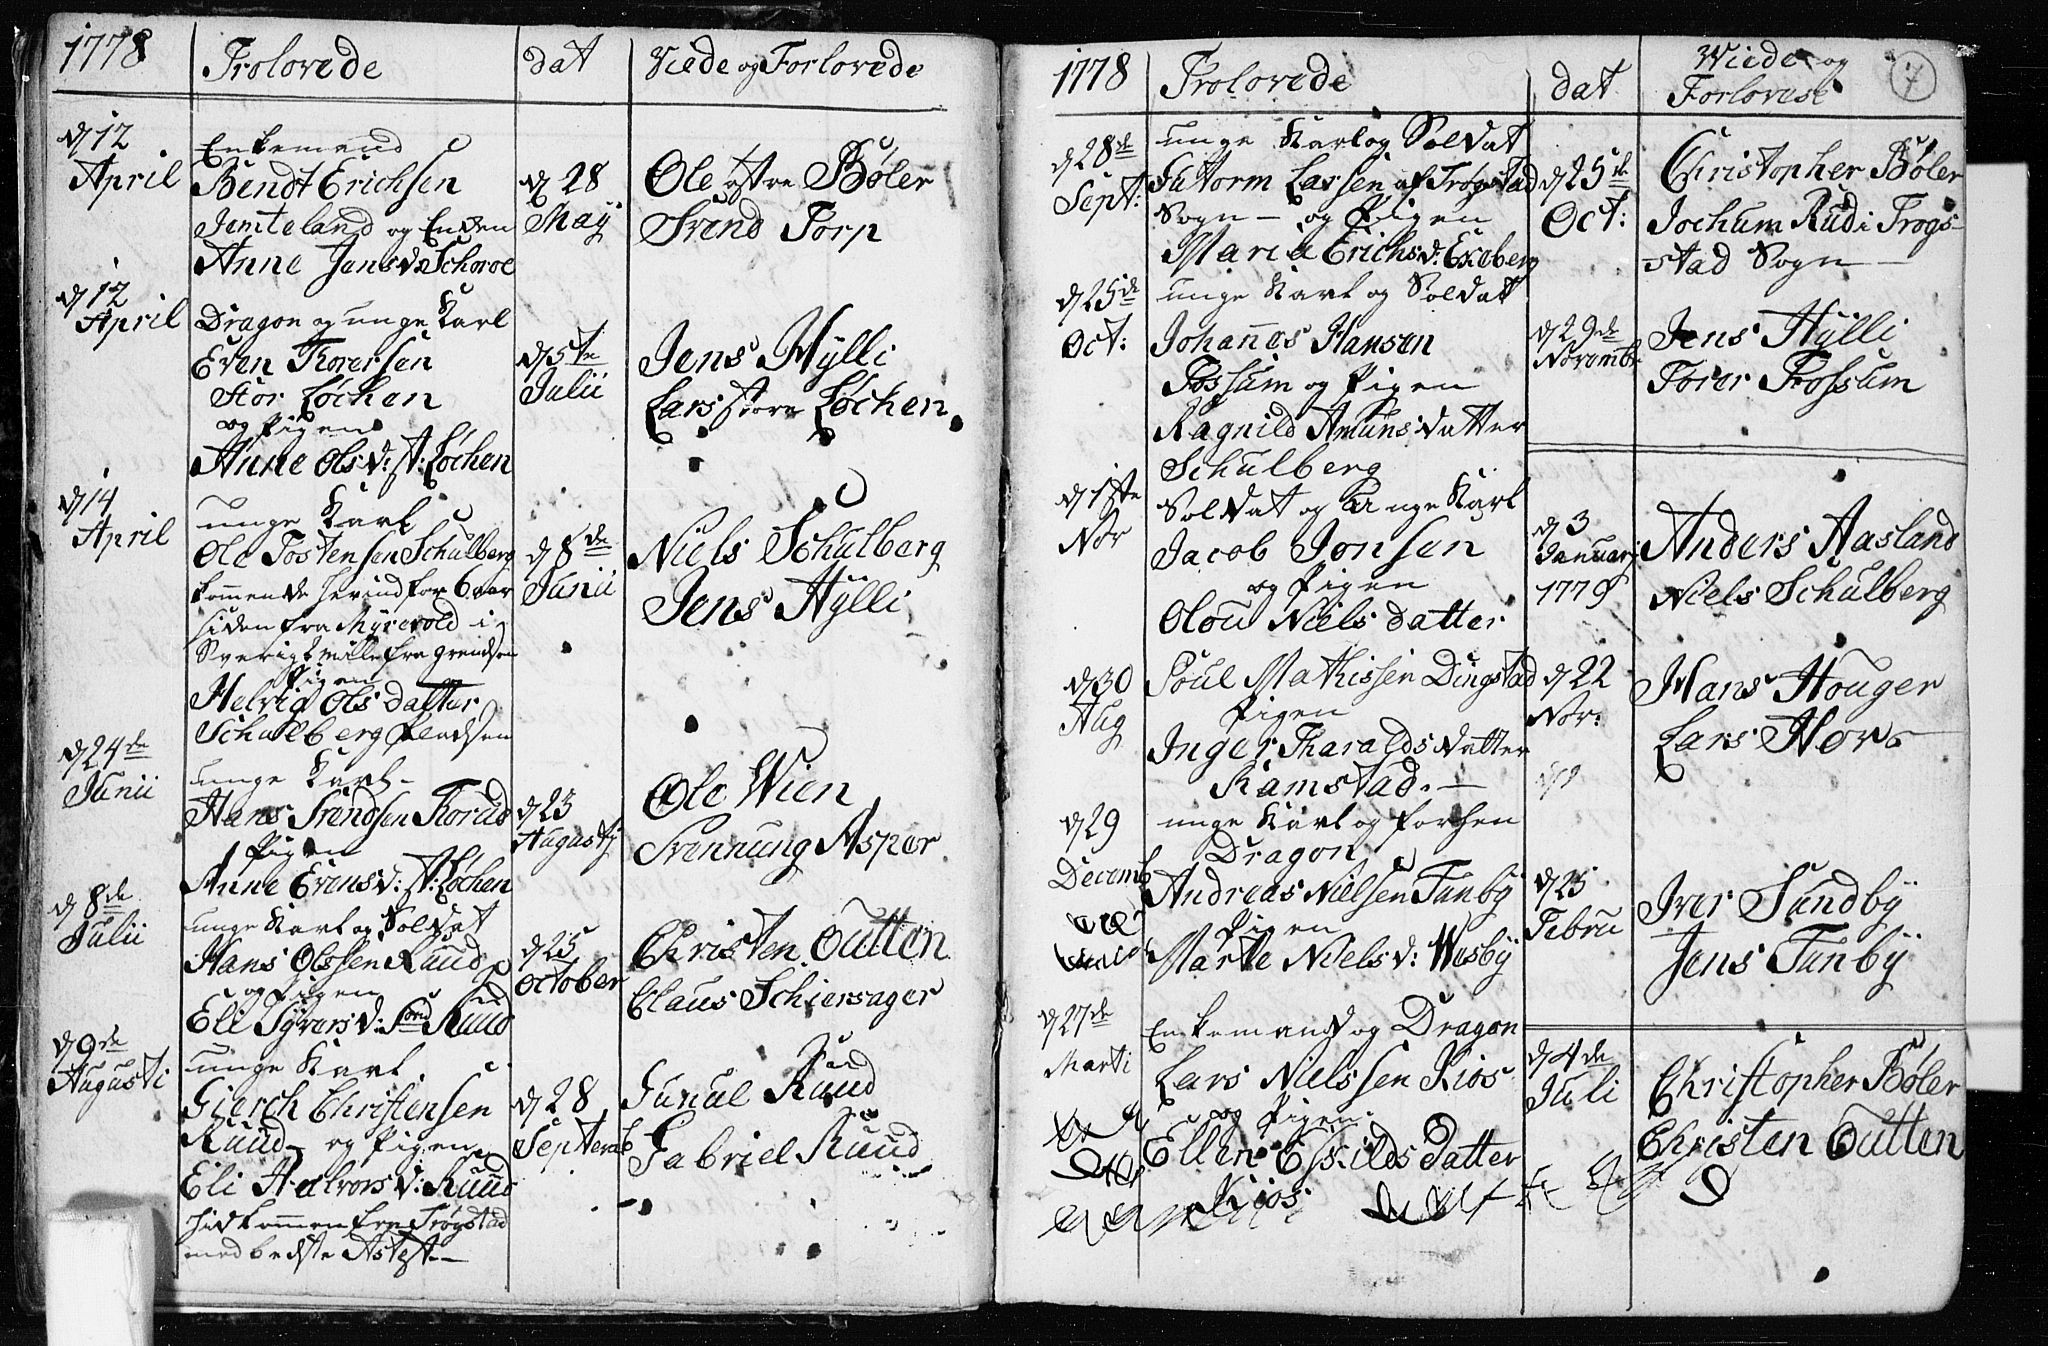 1778
Trolovede
dat
Viede og Forlovede
d 12
April
Enkemand
Bendt Erichsen
Jemteland og Enken
Anne Jensd: Schoroe
d 28
Maÿ
Ole østre Bøler
Svend Torp
d 12
April
Dragon og unge Karl
Even Thoresen
Stor Løchen
og Pigen
Anne Olsd: St: Løchen
d 5te
Julii
Jens Hÿlli
Lars store Løchen
d 14
April
unge Karl
Ole Tostensen Schulberg
kommende herind for 6 aar
siden fra Mÿrevold i
Sverig mille fra grendsen
Pigen
Helvig Olsdatter
Schulberg Pladsen
d 8de
Junii
Niels Schulberg
Jens Hÿlli
d 24de
Junii
unge Karl
Hans Svendsen Thorud
Pigen
Anne Evensd: St: Løchen
d 23
Augustj
Ole Wien
Svennung Asper
d 8de
Julii
unge Karl og Soldat
Hans Olssen Ruud
og pigen
Eli Sÿversd: Ruud
d 25
October
Christen Outten
Claus Schiersager
d 9de
Augusti
unge Karl
Gierch Christensen
Ruud og Pigen
Eli Halvorsd: Ruud
hidkommen fra Trøgstad
med bedste Atest
d 28
Septemb
Gunul Ruud
Gabriel Ruud
7
1778
Trolovede
dat
Wiede og
Forlovese
d 28de
Sept:
unge Karl og Soldat
Gutorm Lassen af Trøgstad
Sogn - og Pigen
Maria Erichsd: Exeberg
d 25de
Oct:
Christopher Bøler
Jochum Rud i Trøgs-
stad Sogn
d 25de
Oct:
unge Karl og Soldat
Johannes Hansen
Fossum og Pigen
Ragnild Amunsdatter
Schulberg
d 29de
Novembr
Jens Hÿlli
Torer Frossum
d 1ste
Nov
Soldat og unge Karl
Jacob Jonsen
og Pigen
Olou Nielsdatter
d 3
Januarj
1779
Anders Aasland
Niels Schulberg
d 30
Aug
Poul Mathissen Dingstad
Pigen
Inger Tharaldsdatter
Ramstad.
d 22
Nov:
Hans Houger
Lars Hove
d 29
Decemb
unge Karl og forhen
Dragon
Andreas Nielsen Tunby
Pigen
Marte Nielsd: Wesbÿ
d 25
Febru
Iver Sundbÿ
Jens Tunbÿ
d 27de
Marti
Enkemand og Dragon
Lars Nielssen Kios
og Pigen
Ellen Eskildsdatter
Kios
d 4de
Juli
Christopher Bøler
Christen Outten